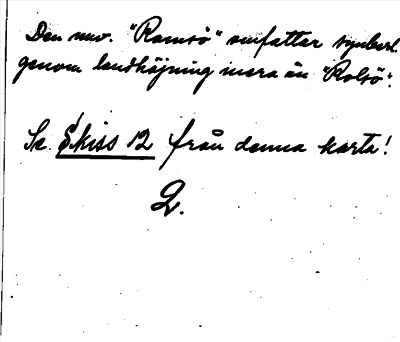 Den nuv. "Ramsö" omfattar synbarl.
genom landhöjning mera än "Rolsö".
Se Skiss 12 från denna karta!
2.